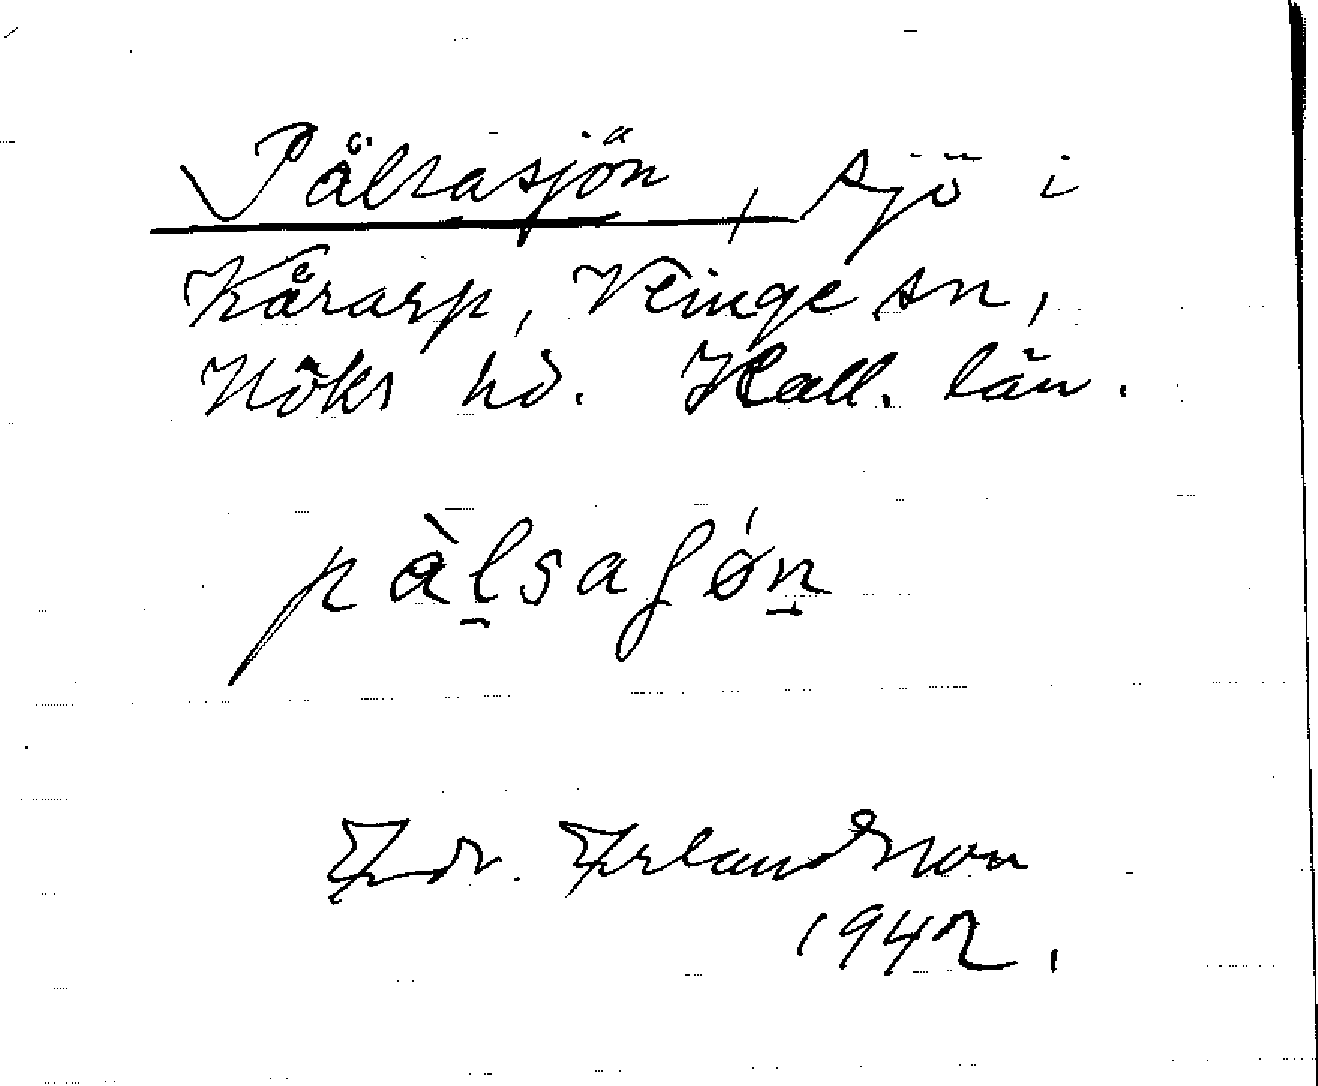 Pålsasjön, sjö i
Kårarp, Veinge sn,
Höks hd. Hall. län.
pàl̠saʃón̠
Edv. Erlandsson
1942.